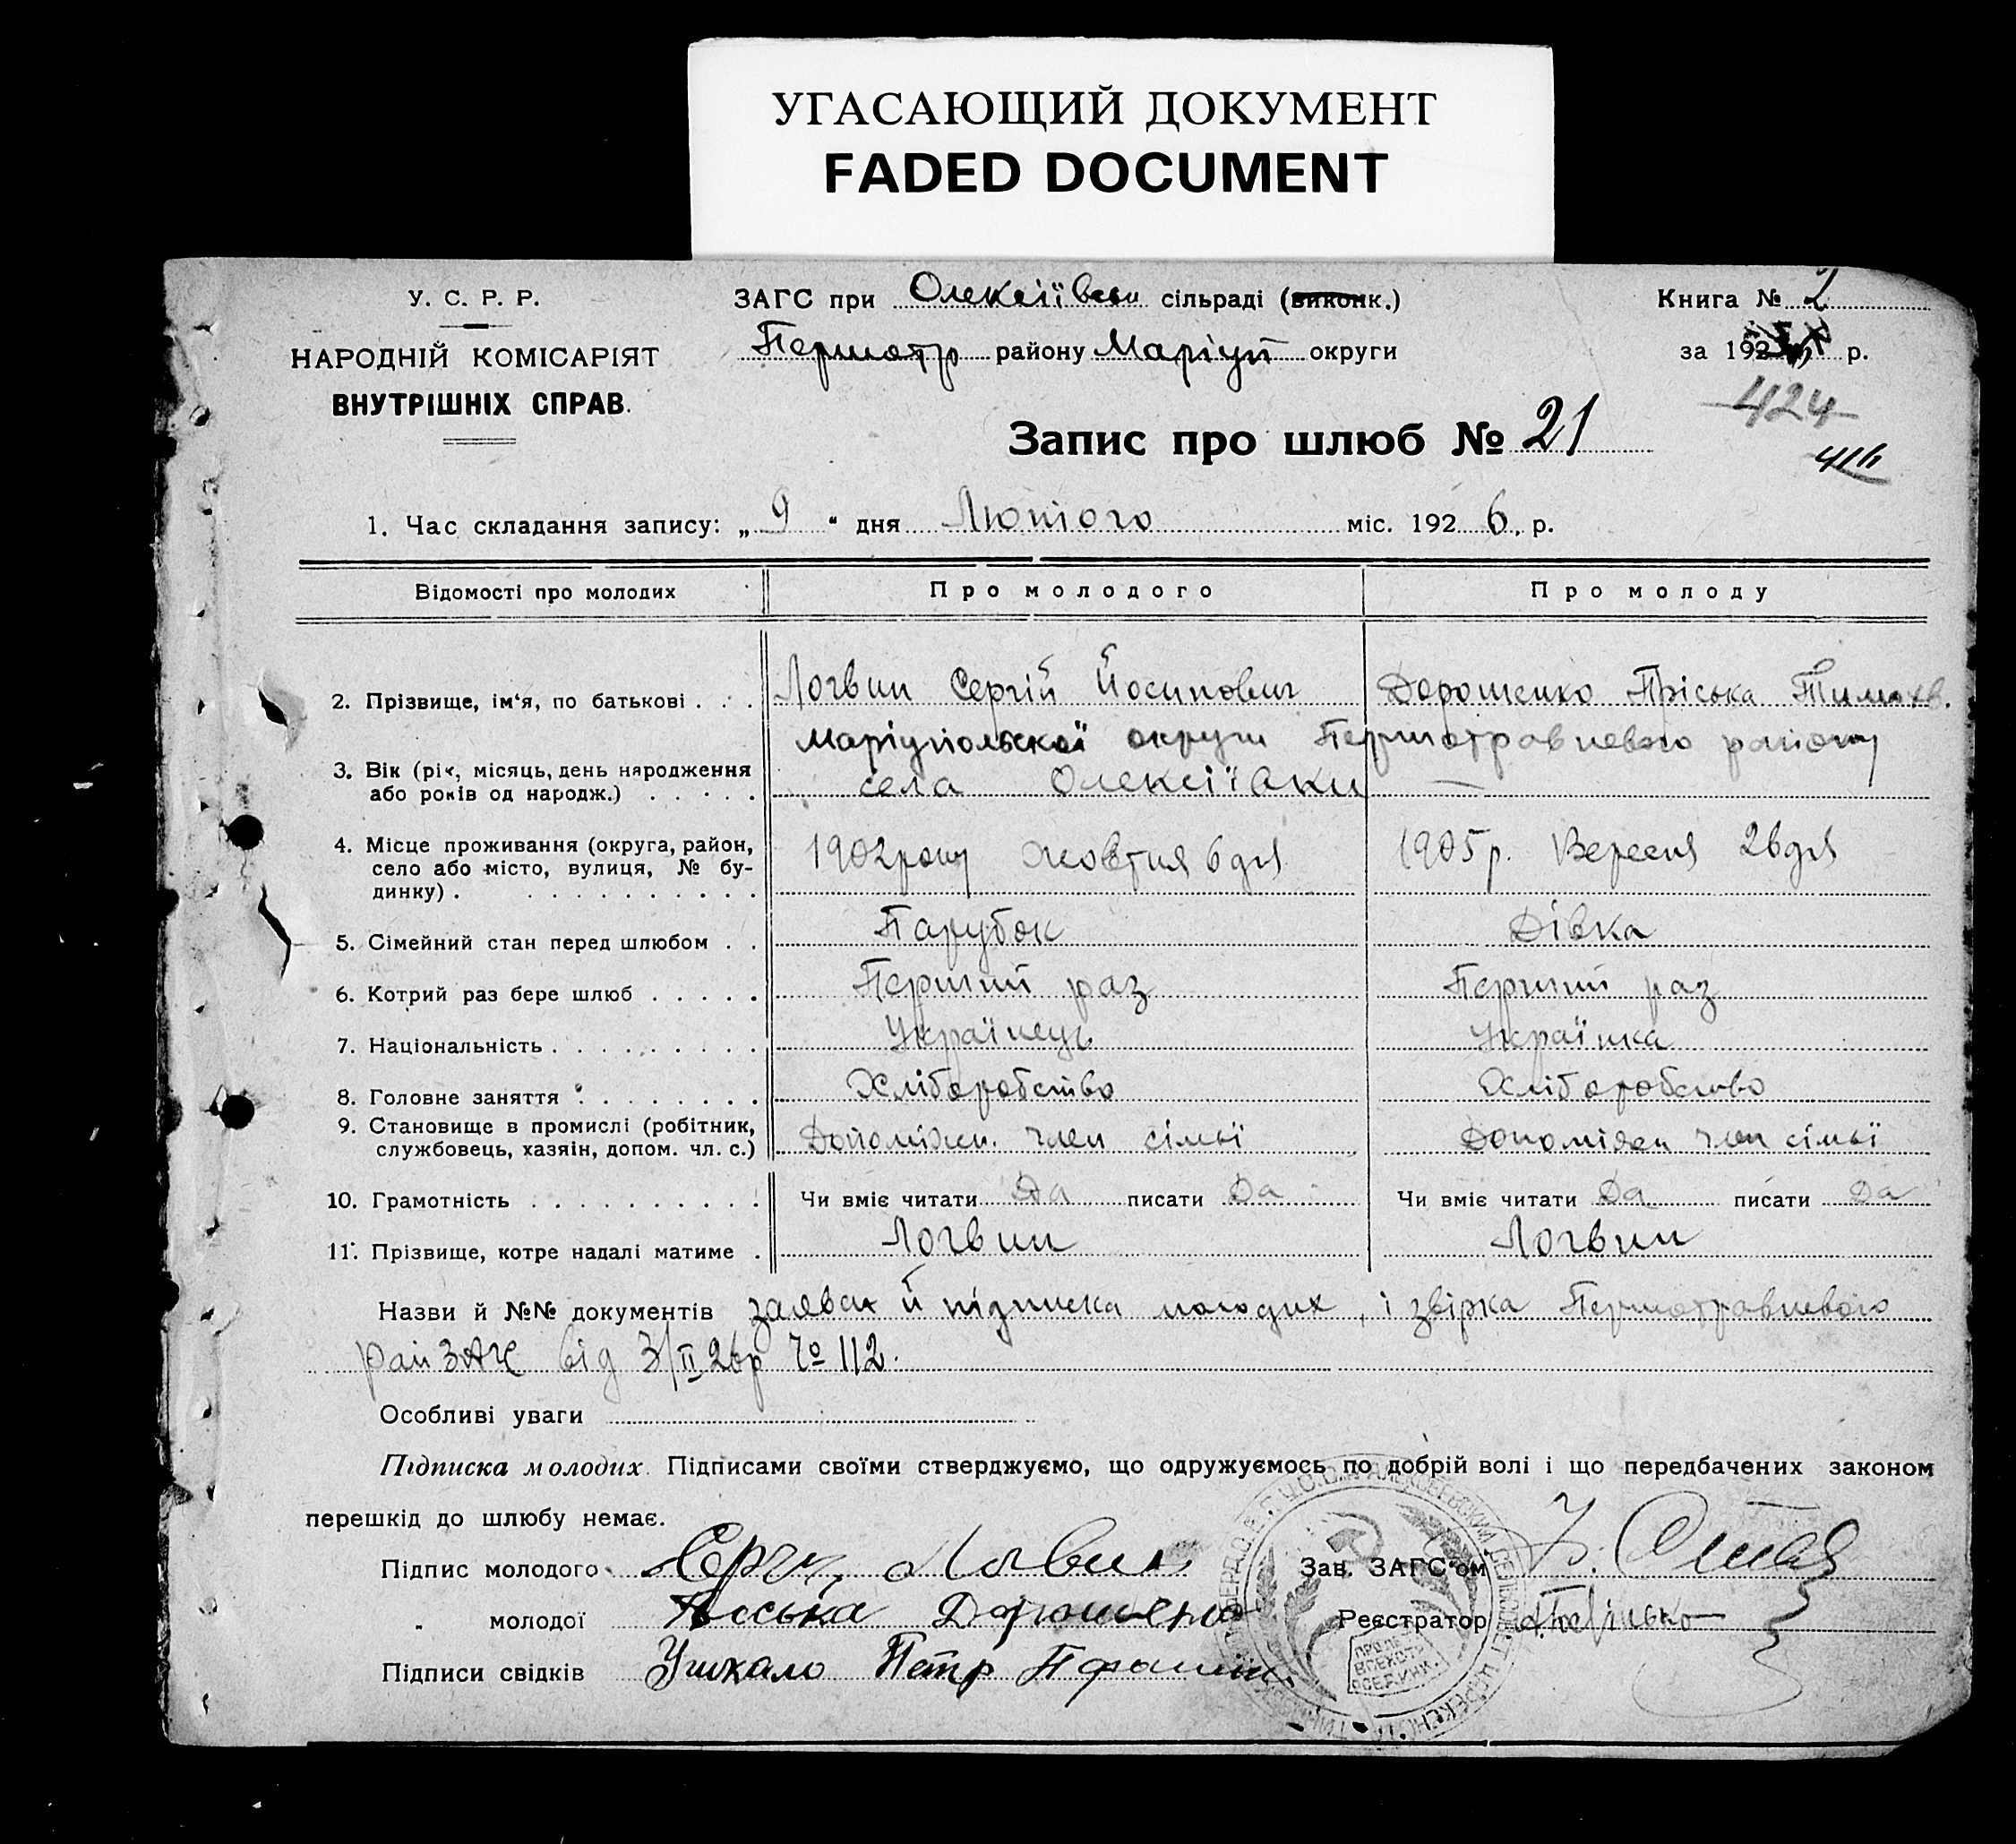 УГАСАЮЩИЙ ДОКУМЕНТ
FADED DOCUMENT
У. С. Р. Р.
НАРОДНІЙ КОМІСАРІЯТ
ВНУТРІШНІХ СПРАВ.
ЗАГС при Олексіївськ сільраді (виконк.)
Першотр району Маріуп округи
Книга № 2
за 192 р.
424
416
Запис про шлюб № 21
1. Час складання запису: „ 9 “ дня Лютого міс. 192 6. р.
Відомості про молодих Про молодого Про молоду
2. Прізвище, ім‘я, по батькові . . . Логвин Сергій Йосипович Дорошенко Пріська Тимохв.
Маріупольскої округи Першотравневого району
3. Вік (рік, місяць, день народження
або років од народж.) . . . . . села Олексіївки —
4. Місце проживання (округа, район,
село або місто, вулиця, № бу-
динку) . . . . . . . . . . . 1902 року жовтня 6 дня 1905 р. Вересня 26 дня
5. Сімейний стан перед шлюбом . . Парубок Дівка
6. Котрий раз бере шлюб . . . . . Перший раз Перший раз
7. Національність . . . . . . . . . Українець Українка
8. Головне заняття . . . . . . . . Хліборобство Хліборобство
9. Становище в промислі (робітник,
службовець, хазяін, допом. чл. с.) Допоміжн. член сімьї Допоміжн член сімьї
10. Грамотність . . . . . . . . . . Чи вміє читати Да писати Да Чи вміє читати Да писати Да
11. Прізвище, котре надалі матиме . Логвин Логвин
Назви й №№ документів заява й підписка молодих, і звірка Першотравневого
рай ЗАГС від 3/II 26р № 112.
Особливі уваги
Підписка молодих. Підписами своїми стверджуємо, що одружуємось по добрій волі і що передбачених законом
перешкід до шлюбу немає.
Підпис молодого Сергій Логвин Зав. ЗАГС‘ом
„ молодої Пріська Дорошенко Реєстратор
Підписи свідків Петр
ПРОЛЕТ.
ВСЕХ СТР.
СОЕДИН.